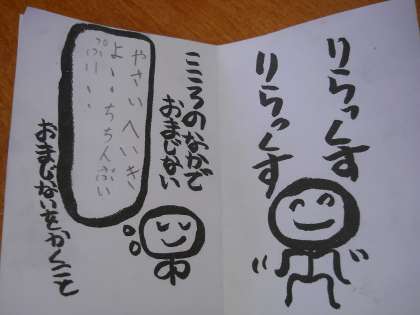 りらっくす
りらっくす
こころのなかで
おまじない
やさい へいき
よーーちちんぷい
ぷいーー
おまじないをかくこと